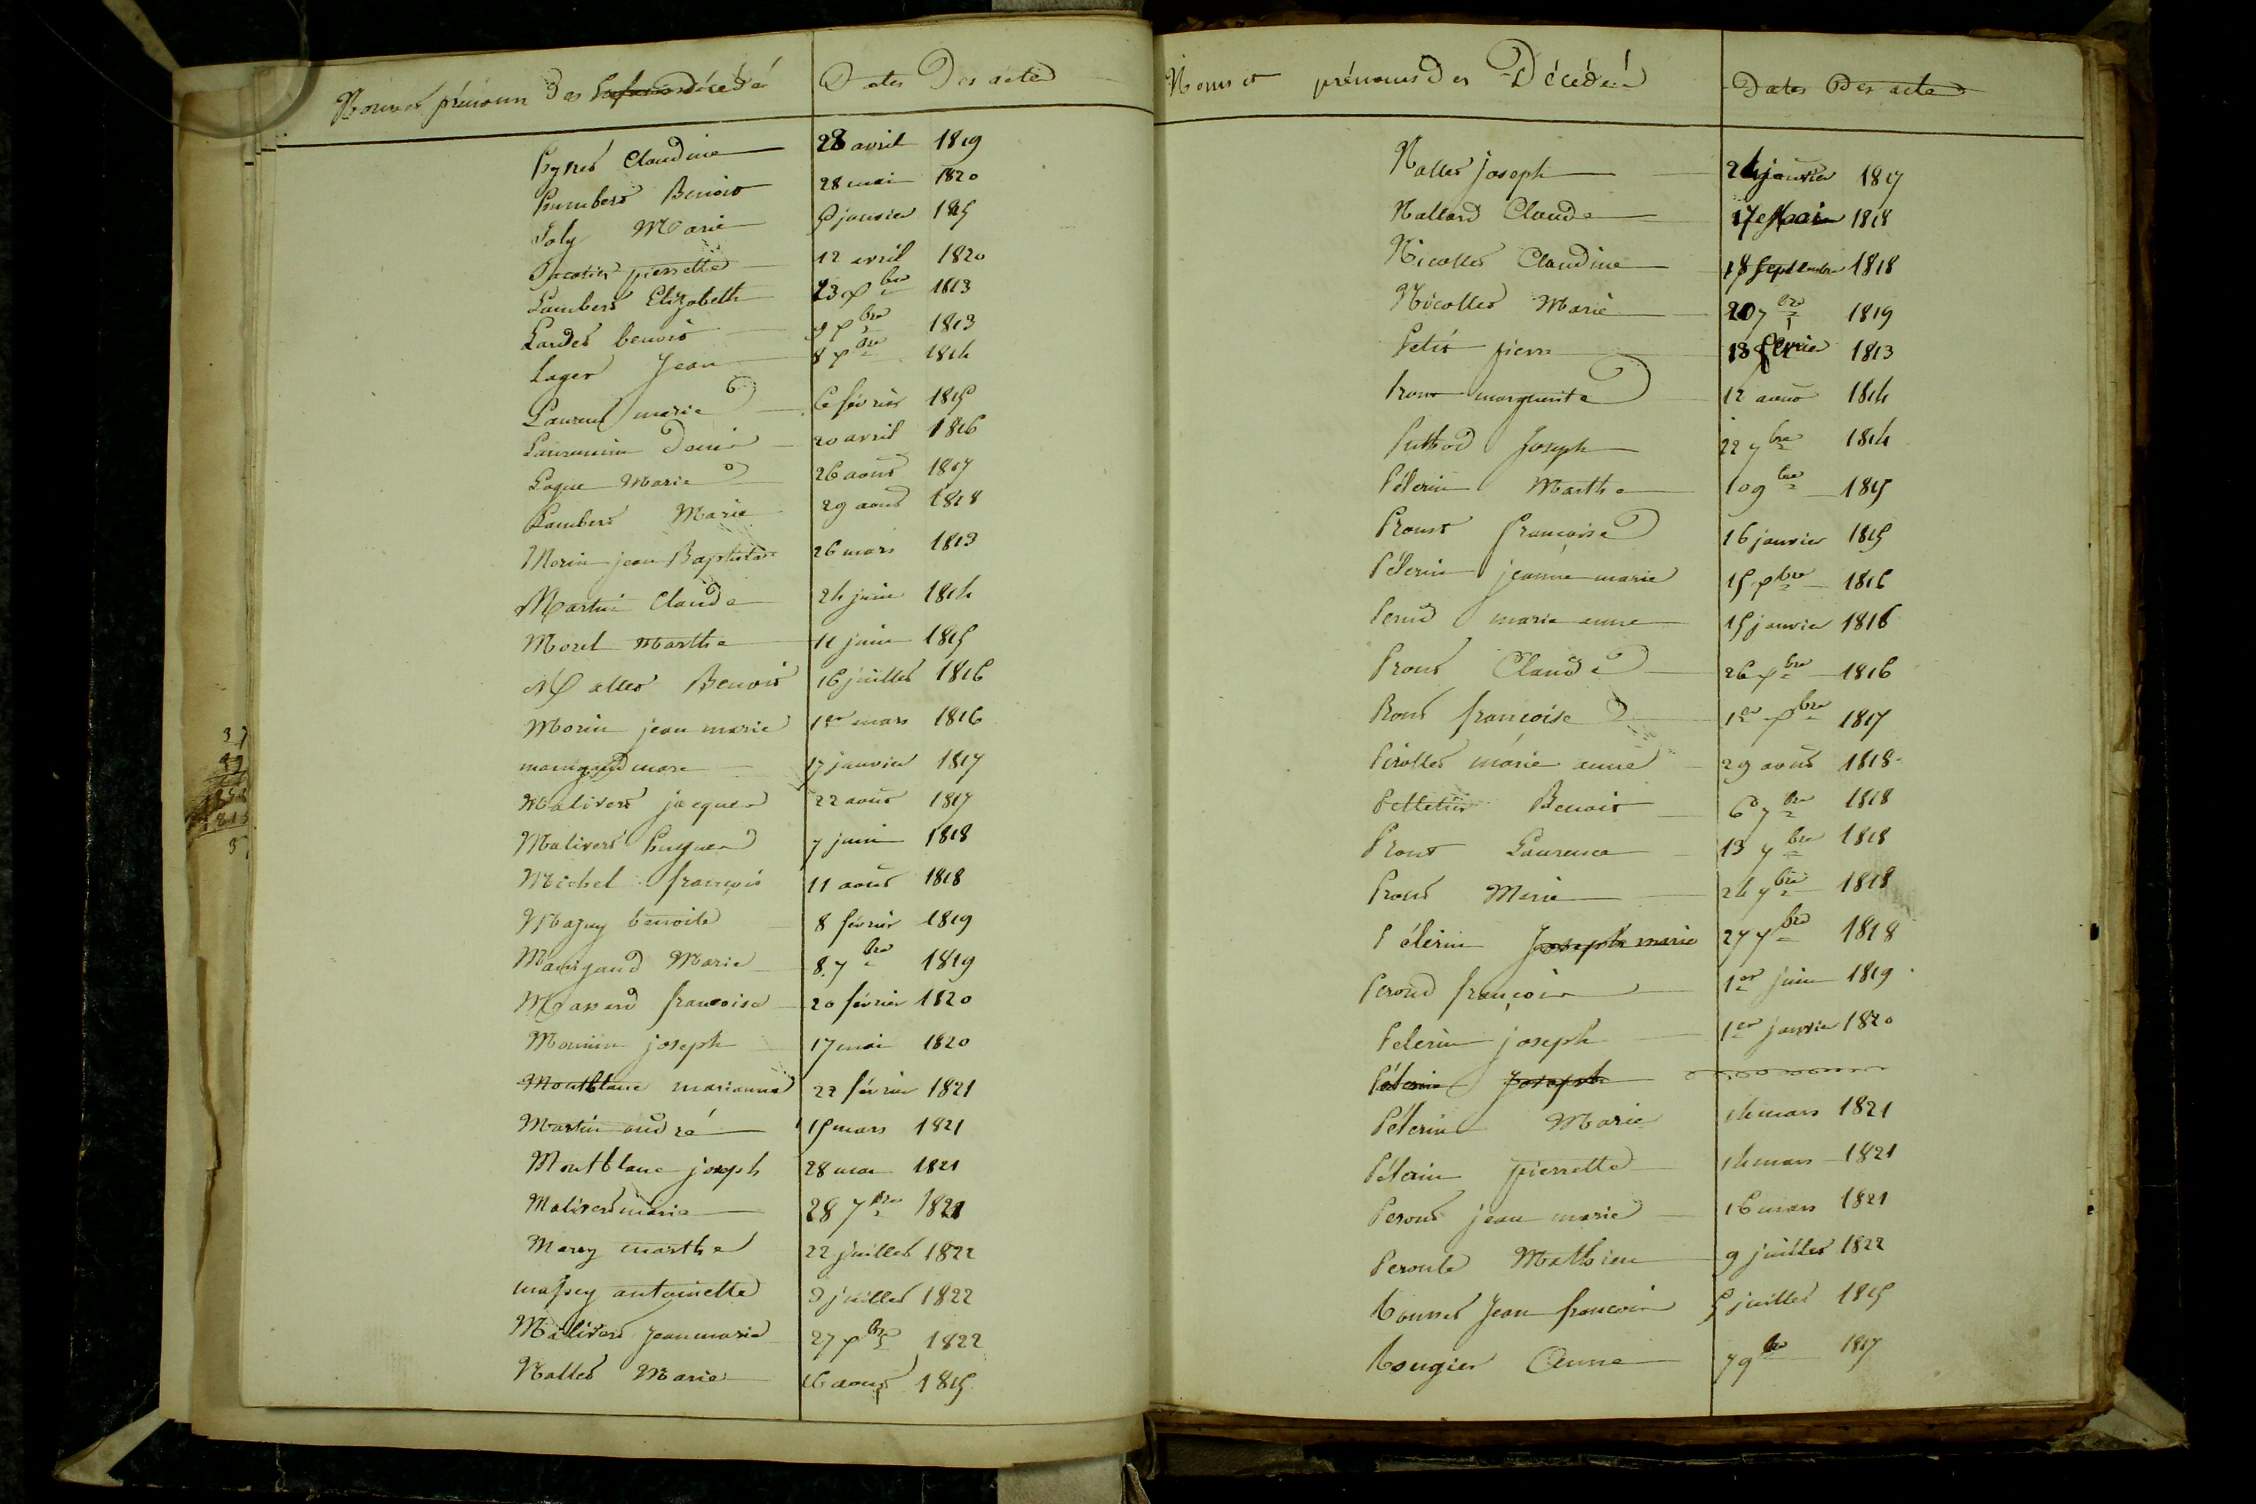 Noms et prénoms des décédés Dates Des actes
Claudine 28 avril 1819
Humbert Benoit 28 mai 1820
Joly Marie janvier 1815
Jacotier pierrette 12 avril 1820
Lambert Elizabeth 23 xbre 1813
Lardet benoit 9 xbre 1813
Lager Jean 8 xbre 1814
Laurent marie 6 février 1815
Laurencin Denis 20 avril 1816
Lague Marie 26 août 1817
Lambert Marie 29 août 1818
Morin jean Baptiste 26 mars 1813
Martin Claude 24 juin 1814
Morel Marthe 11 juin 1815
Mallet Benoit 16 juillet 1816
Morin jean marie 1er mars 1816
manigand marie 17 janvier 1817
Malivert jacques 22 août 1817
Malivert hugues 7 juin 1818
Michel françois 11 août 1818
Magny benoite 8 février 1819
Manigand Marie 8 7bre 1819
françoise 20 février 1820
Monnier joseph 17 mai 1820
Montblanc marianne 22 février 1821
Martin andré 15 mars 1821
Montblanc joseph 28 mai 1821
Malivert marie 28 7bre 1821
Marey marthe 22 juillet 1822
massey antoinette 9 juillet 1822
Malivert jean marie 27 xbre 1822
Nallet Marie 16 août 1815
37
Noms et prénoms des Décédés Dates Des actes
Nallet joseph 24 janvier 1817
Nallard Claude 17 Mai 1818
Nicollet Claudine 18 septembre 1818
Nicollet Marie 20 7bre 1819
Petit pierre 13 février 1813
Prout marguerite 12 août 1814
Putbod Joseph 22 7bre 1814
Pélerin Marthe 10 9bre 1815
Prout françoise 16 janvier 1815
Pélerin jeanne marie 15 xbre 1816
Peroud marie anne 15 janvier 1816
Prout Claude 26 xbre 1816
Prout françoise 1er xbre 1817
Pirollet marie anne 29 août 1818
Pelletier Benoit 6 7bre 1818
Prout Laurence 13 7bre 1818
Prout Marie 24 7bre 1818
Pélerin Joseph marie 27 7bre 1818
Peroud françois 1er juin 1819
Pelerin joseph 1er janvier 1820
Pélerin Joseph
Pélerin Marie 14 mars 1821
Pélerin pierrette 14 mars 1821
Perout jean marie 16 mars 1821
Mathieu 9 juillet 1822
Jean françois 5 juillet 1815
Rougier Anne 7 9bre 1817